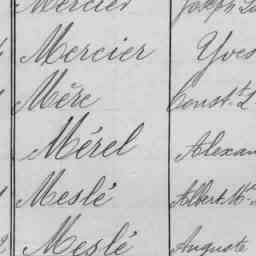 Mercier Joseph
Mercier Yves
Mère Const.t L
Mérel Alexan
Meslé Albert M.ie
Meslé Auguste